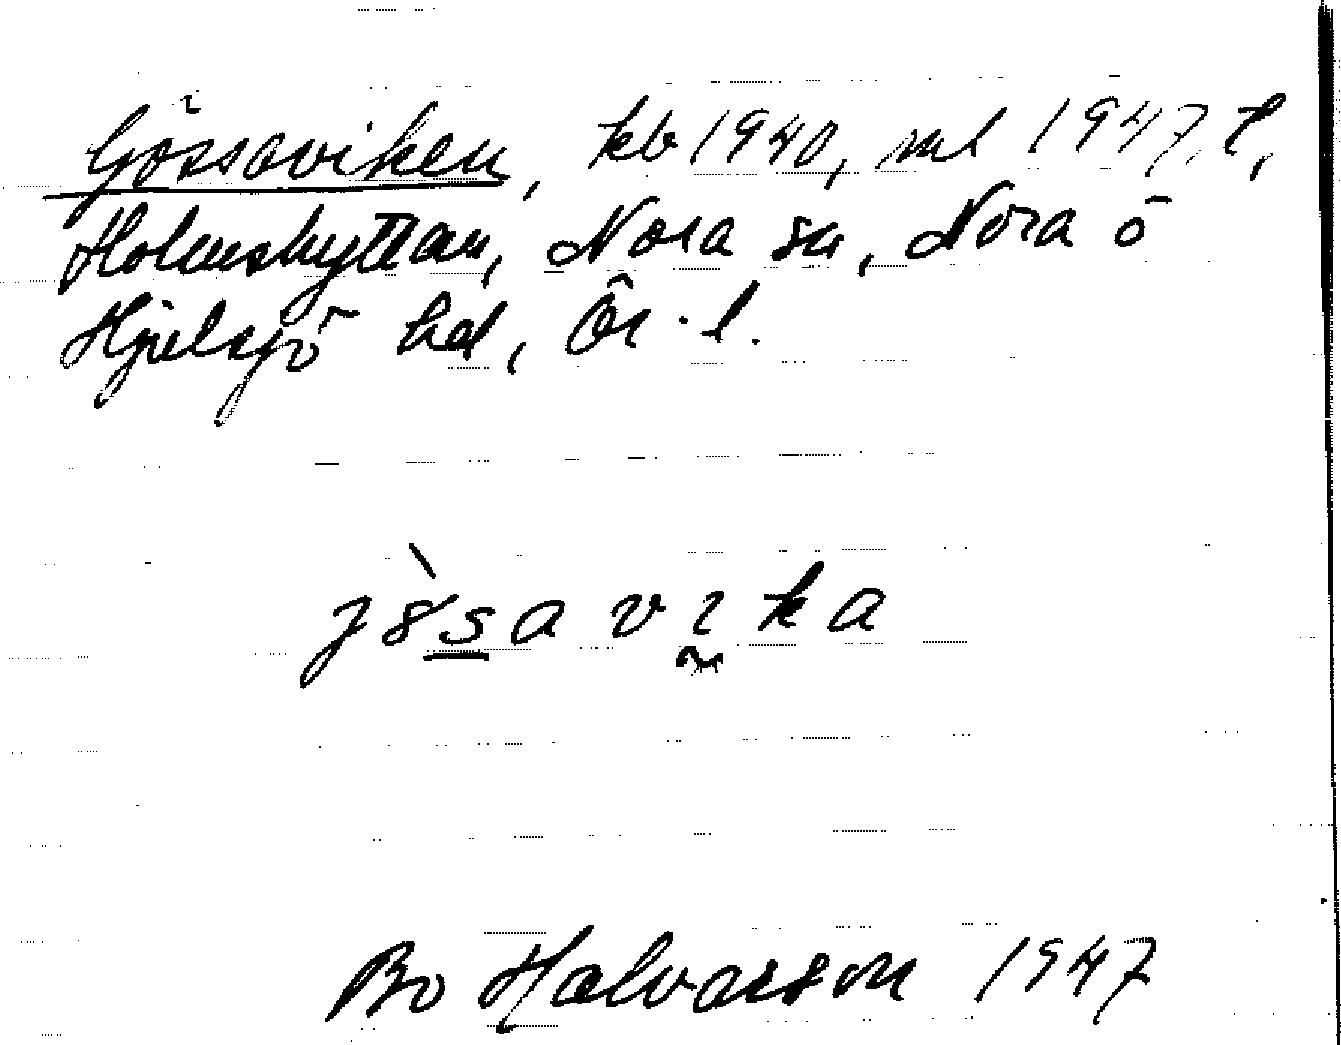 Gössaviken, kb 1940, ml 1947, t,
Holmshyttan, Nora sn, Nora o
Hjulsjö hd, Ör. l.
jösavika
Bo Halvarson 1947